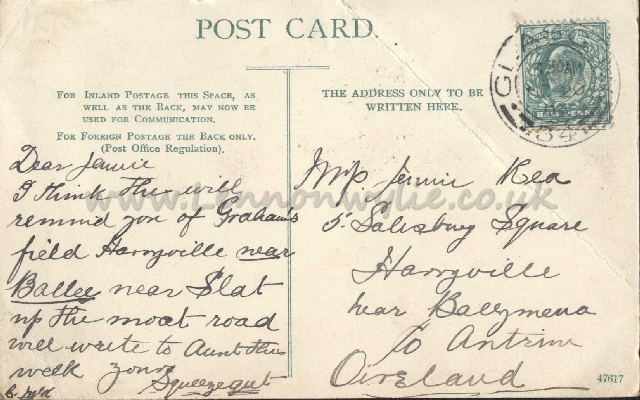 POST CARD.
FOR INLAND POSTAGE THIS SPACE, AS
WELL AS THE BACK, MAY NOW BE
USED FOR COMMUNICATION.
FOR FOREIGN POSTAGE THE BACK ONLY.
(Post Office Regulation).
THE ADDRESS ONLY TO BE
WRITTEN HERE.
HALFPENNY
Dear Jennie
I think this will
remind you of Graham's
field Harryville near
Ballee near Slat
up the moat road
will write to Aunt this
week yours
Squeezegut
Jennie Rea
5 Salisbury Square
Harryville
near Ballymena
Co Antrim
Oireland
47617
www.Lennonwylie.co.uk